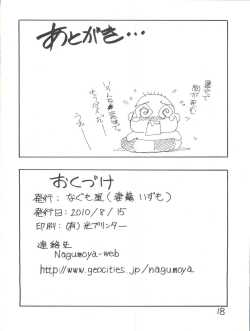 あとがき…
おくづけ
発行: なぐも屋(斎藤 いずも)
発行日: 2010/8/15
印刷: (有)光プリンター
連絡先
Nagumoya-web
http://www.geocities.jp/nagumoya
18